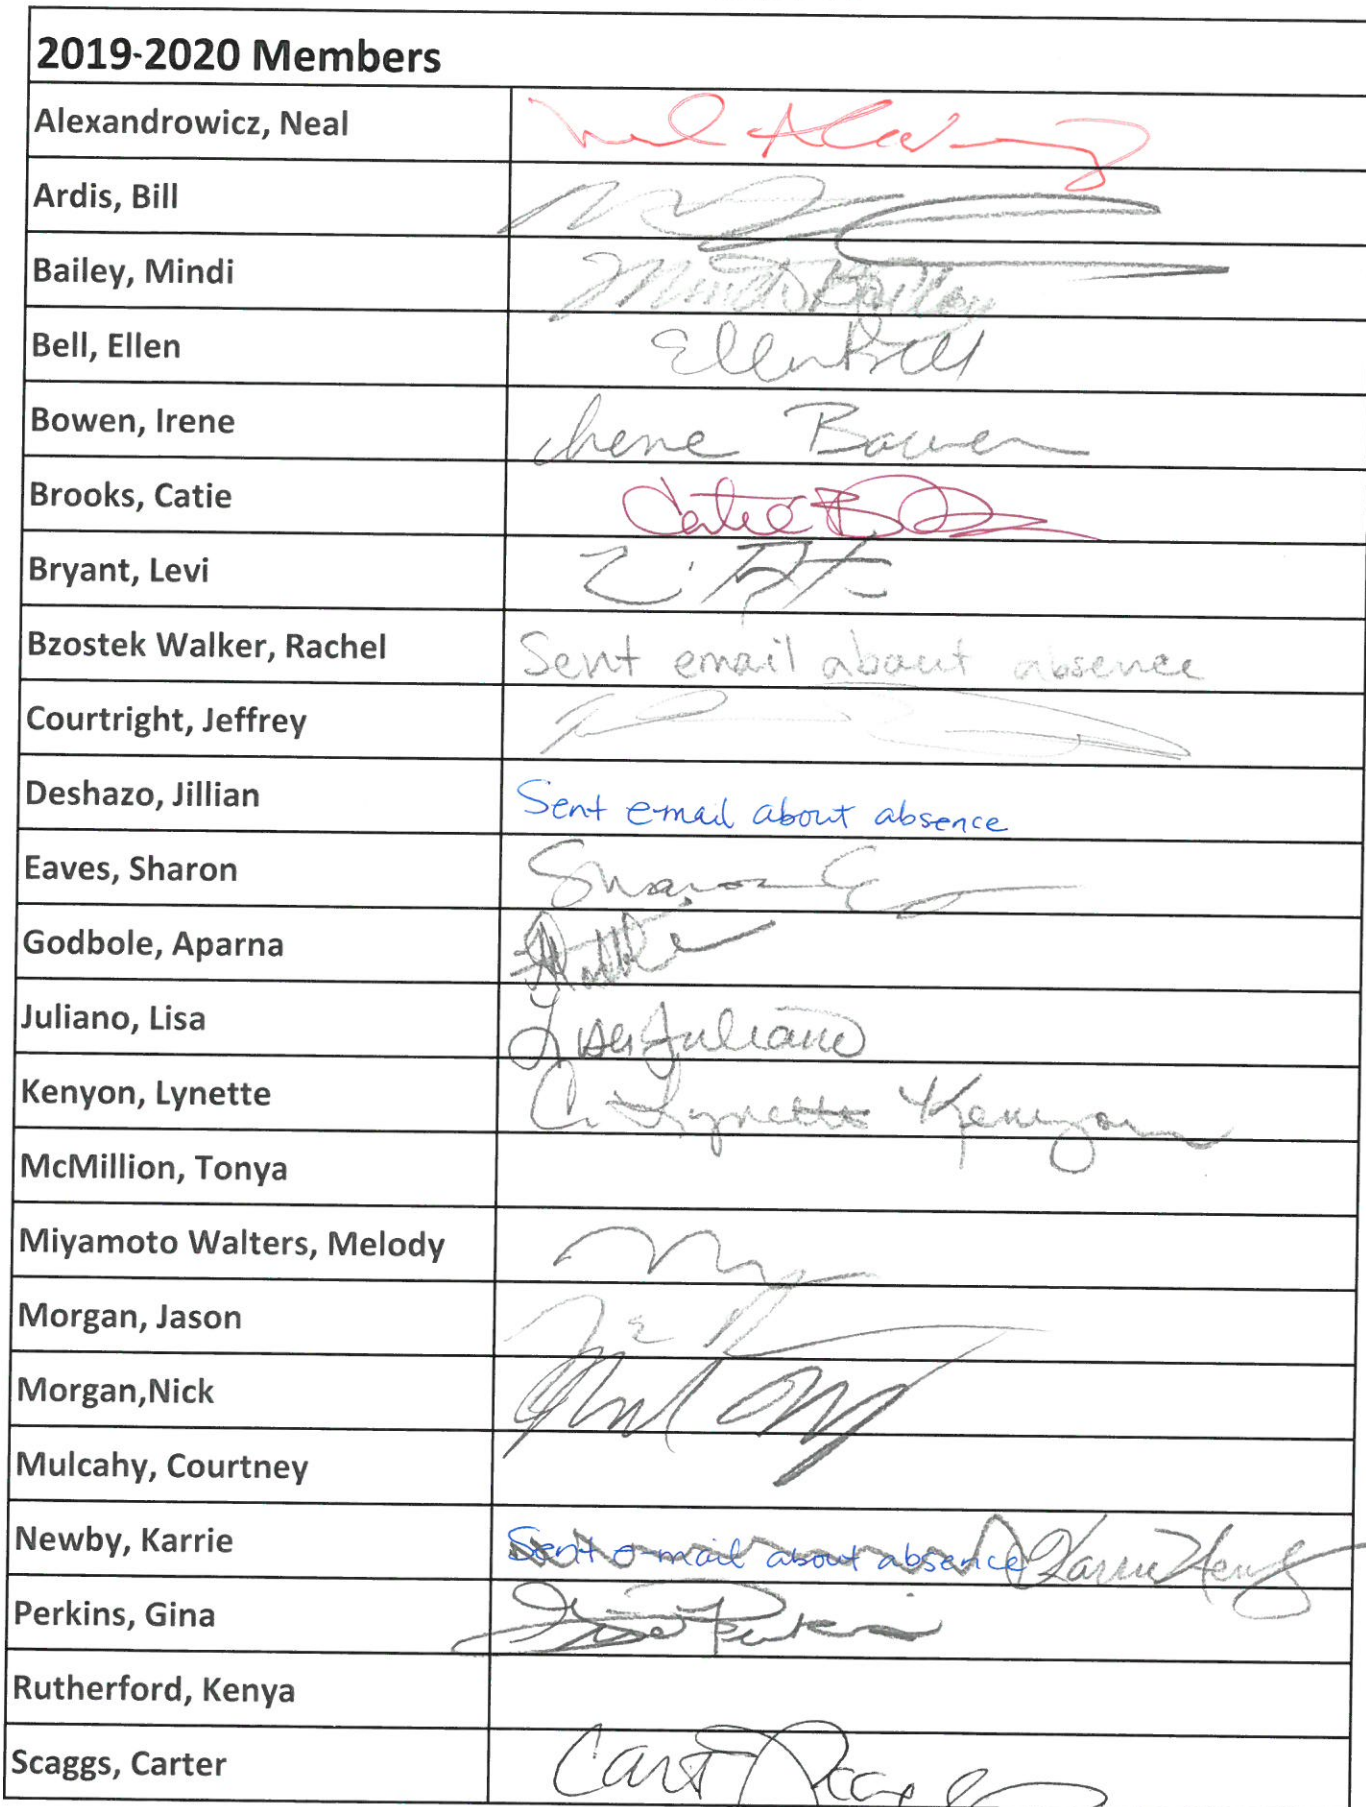 2019-2020 Members
Alexandrowicz, Neal
Ardis, Bill
Bailey, Mindi Mindi Bailey
Bell, Ellen Ellen Bell
Bowen, Irene Irene Bowen
Brooks, Catie Catie B
Bryant, Levi
Bzostek Walker, Rachel Sent email about absence
Courtright, Jeffrey
Deshazo, Jillian Sent e-mail about absence
Eaves, Sharon Sharon E
Godbole, Aparna
Juliano, Lisa Lisa Juliano
Kenyon, Lynette C. Lynette Kenyon
McMillion, Tonya
Miyamoto Walters, Melody
Morgan, Jason
Morgan,Nick
Mulcahy, Courtney
Newby, Karrie Sent e-mail about absence Karrie
Perkins, Gina Gina Perkins
Rutherford, Kenya
Scaggs, Carter